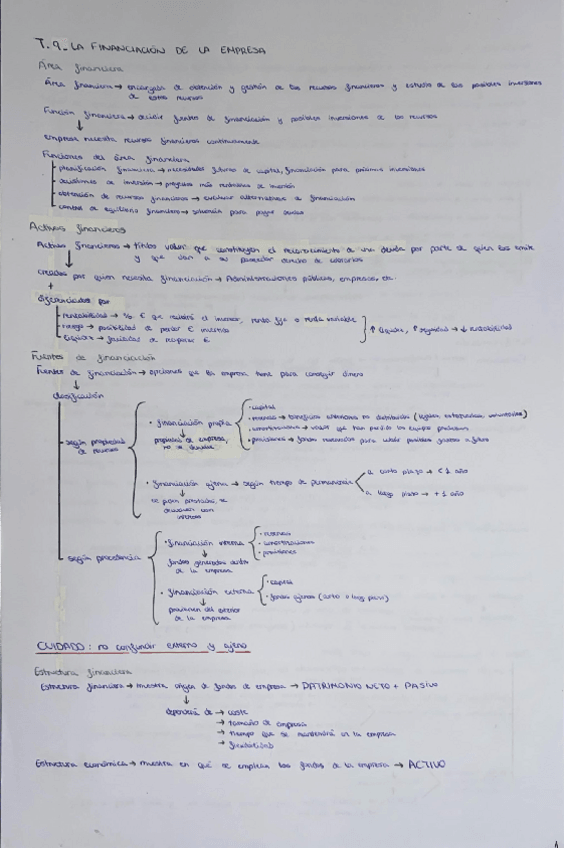 T.9_ LA FINANCIACIÓN DE LA EMPRESA
Área financiera
Área financiera → encargada de obtención y gestión de los recursos financieros y estudio de las posibles inversiones
de estos recursos
Función financiera → decidir fuentes de financiación y posibles inversiones de los recursos
↓
empresa necesita recursos financieros continuamente
Funciones del área financiera
planificación financiera → necesidades futuras de capital, financiación para próximas inversiones
decisiones de inversión → proyectos más rentables de inversión
obtención de recursos financieros → evaluar alternativas de financiación
control de equilibrio financiero → solvencia para pagar deudas
Activos financieros
Activos financieros → títulos valor: que constituyen el reconocimiento de una deuda por parte de quien los emite
y que dan a su poseedor derecho de cobrarlos
↓
creados por quien necesita financiación → Administraciones públicas, empresas, etc.
+
diferenciados por
rentabilidad → % € que recibirá el inversor, renta fija o renta variable
riesgo → posibilidad de perder € invertido
liquidez → facilidad de recuperar €
↑ liquidez, ↑ seguridad → ↓ rentabilidad
Fuentes de financiación
Fuentes de financiación → opciones que la empresa tiene para conseguir dinero
↓
clasificación
según propiedad
de recursos
· financiación propia
propiedad de empresa,
no se devuelve
· capital
· reservas → beneficios anteriores no distribuidos (legales, estatutarias, voluntarias)
· amortizaciones → valor que han perdido los equipos productivos
· provisiones → fondos reservados para cubrir posibles gastos a futuro
· financiación ajena → según tiempo de permanencia
a corto plazo → < 1 año
a largo plazo → + 1 año
devuelven con
intereses
según procedencia
· financiación interna
fondos generados dentro
de la empresa
· reservas
· amortizaciones
· provisiones
· financiación externa
provienen del exterior
de la empresa
· capital
· fondos ajenos (corto o largo plazo)
CUIDADO: no confundir externo y ajeno
Estructura financiera
Estructura financiera → muestra origen de fondos de empresa → PATRIMONIO NETO + PASIVO
↓
dependerá de → coste
→ tamaño de empresa
→ tiempo que se mantendrá en la empresa
→ flexibilidad
Estructura económica → muestra en qué se emplean los fondos de la empresa → ACTIVO